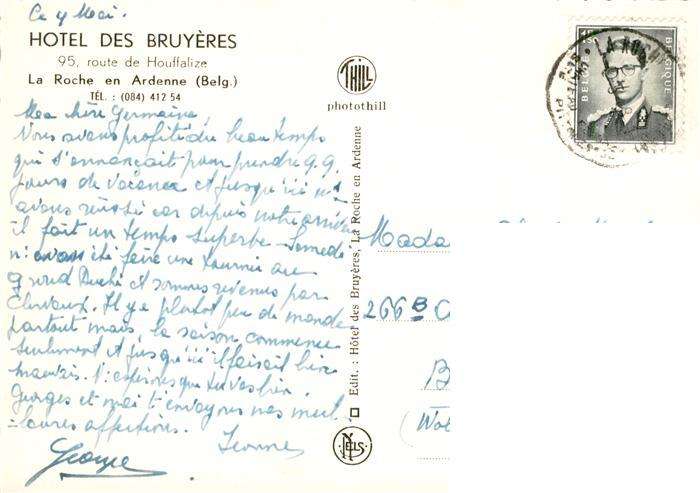 Ce 4 Mai.
HOTEL DES BRUYÈRES
95, route de Houffalize
La Roche en Ardenne (Belg.)
TÉL. : (084) 412 54
Ma chère Germaine,
Vous avons profité du beau temps
qui s'annonçait pour prendre q.q.
jours de vacance et jusqu'ici n/s
avons réussi car depuis notre arrivée
il fait un temps superbe - Samedi
n/ avons été faire une tournée au
Grand Duché et sommes revenus par
Clervaux. Il y a plutot peu de monde
partout mais la saison commence
seulement et jusqu'ici il faisait bien
mauvais. N/ espérons que tu vas bien.
Georges et moi t'envoyons nos meil-
leures affections.
Ivonne
George
THILL
photothill
Edit. : Hôtel des Bruyères, La Roche en Ardenne
NELS
BELGIE BELGIQUE
LA ROCHE
Mada
266 B C
B
(Wol